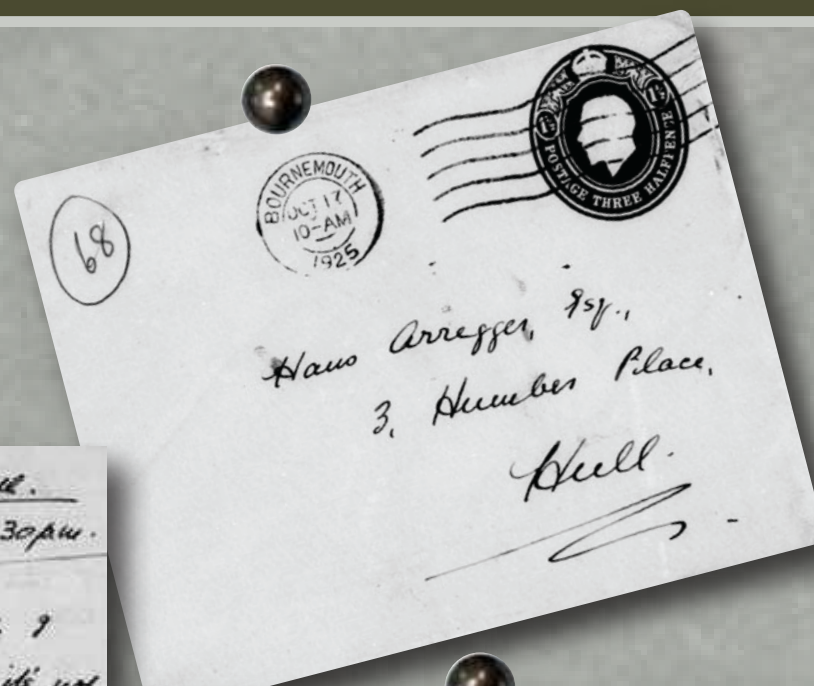 68
BOURNEMOUTH
OCT 17
10-AM
1925
1½ 1½
POSTAGE THREE HALFPENCE
Hans Arregger, Esq.,
3, Humber Place,
Hull.
30 p.m.
9
it's not